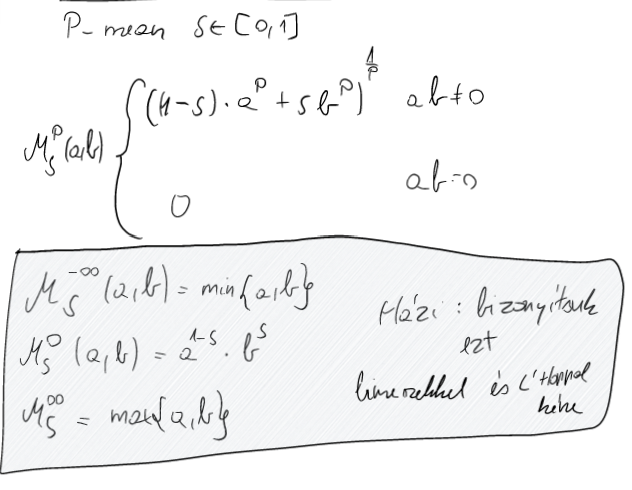 P-mean s∈[0,1]
M_s^p(a,b) { ((1-s)·a^p + s b^p)^{1/p} ab≠0
0 ab=0
M_s^{-∞}(a,b) = min{a,b}
M_s^0(a,b) = a^{1-s}·b^s
M_s^∞ = max{a,b}
Házi: bizonyítsuk
ezt
limeszekkel és L'Hoppal
kéne